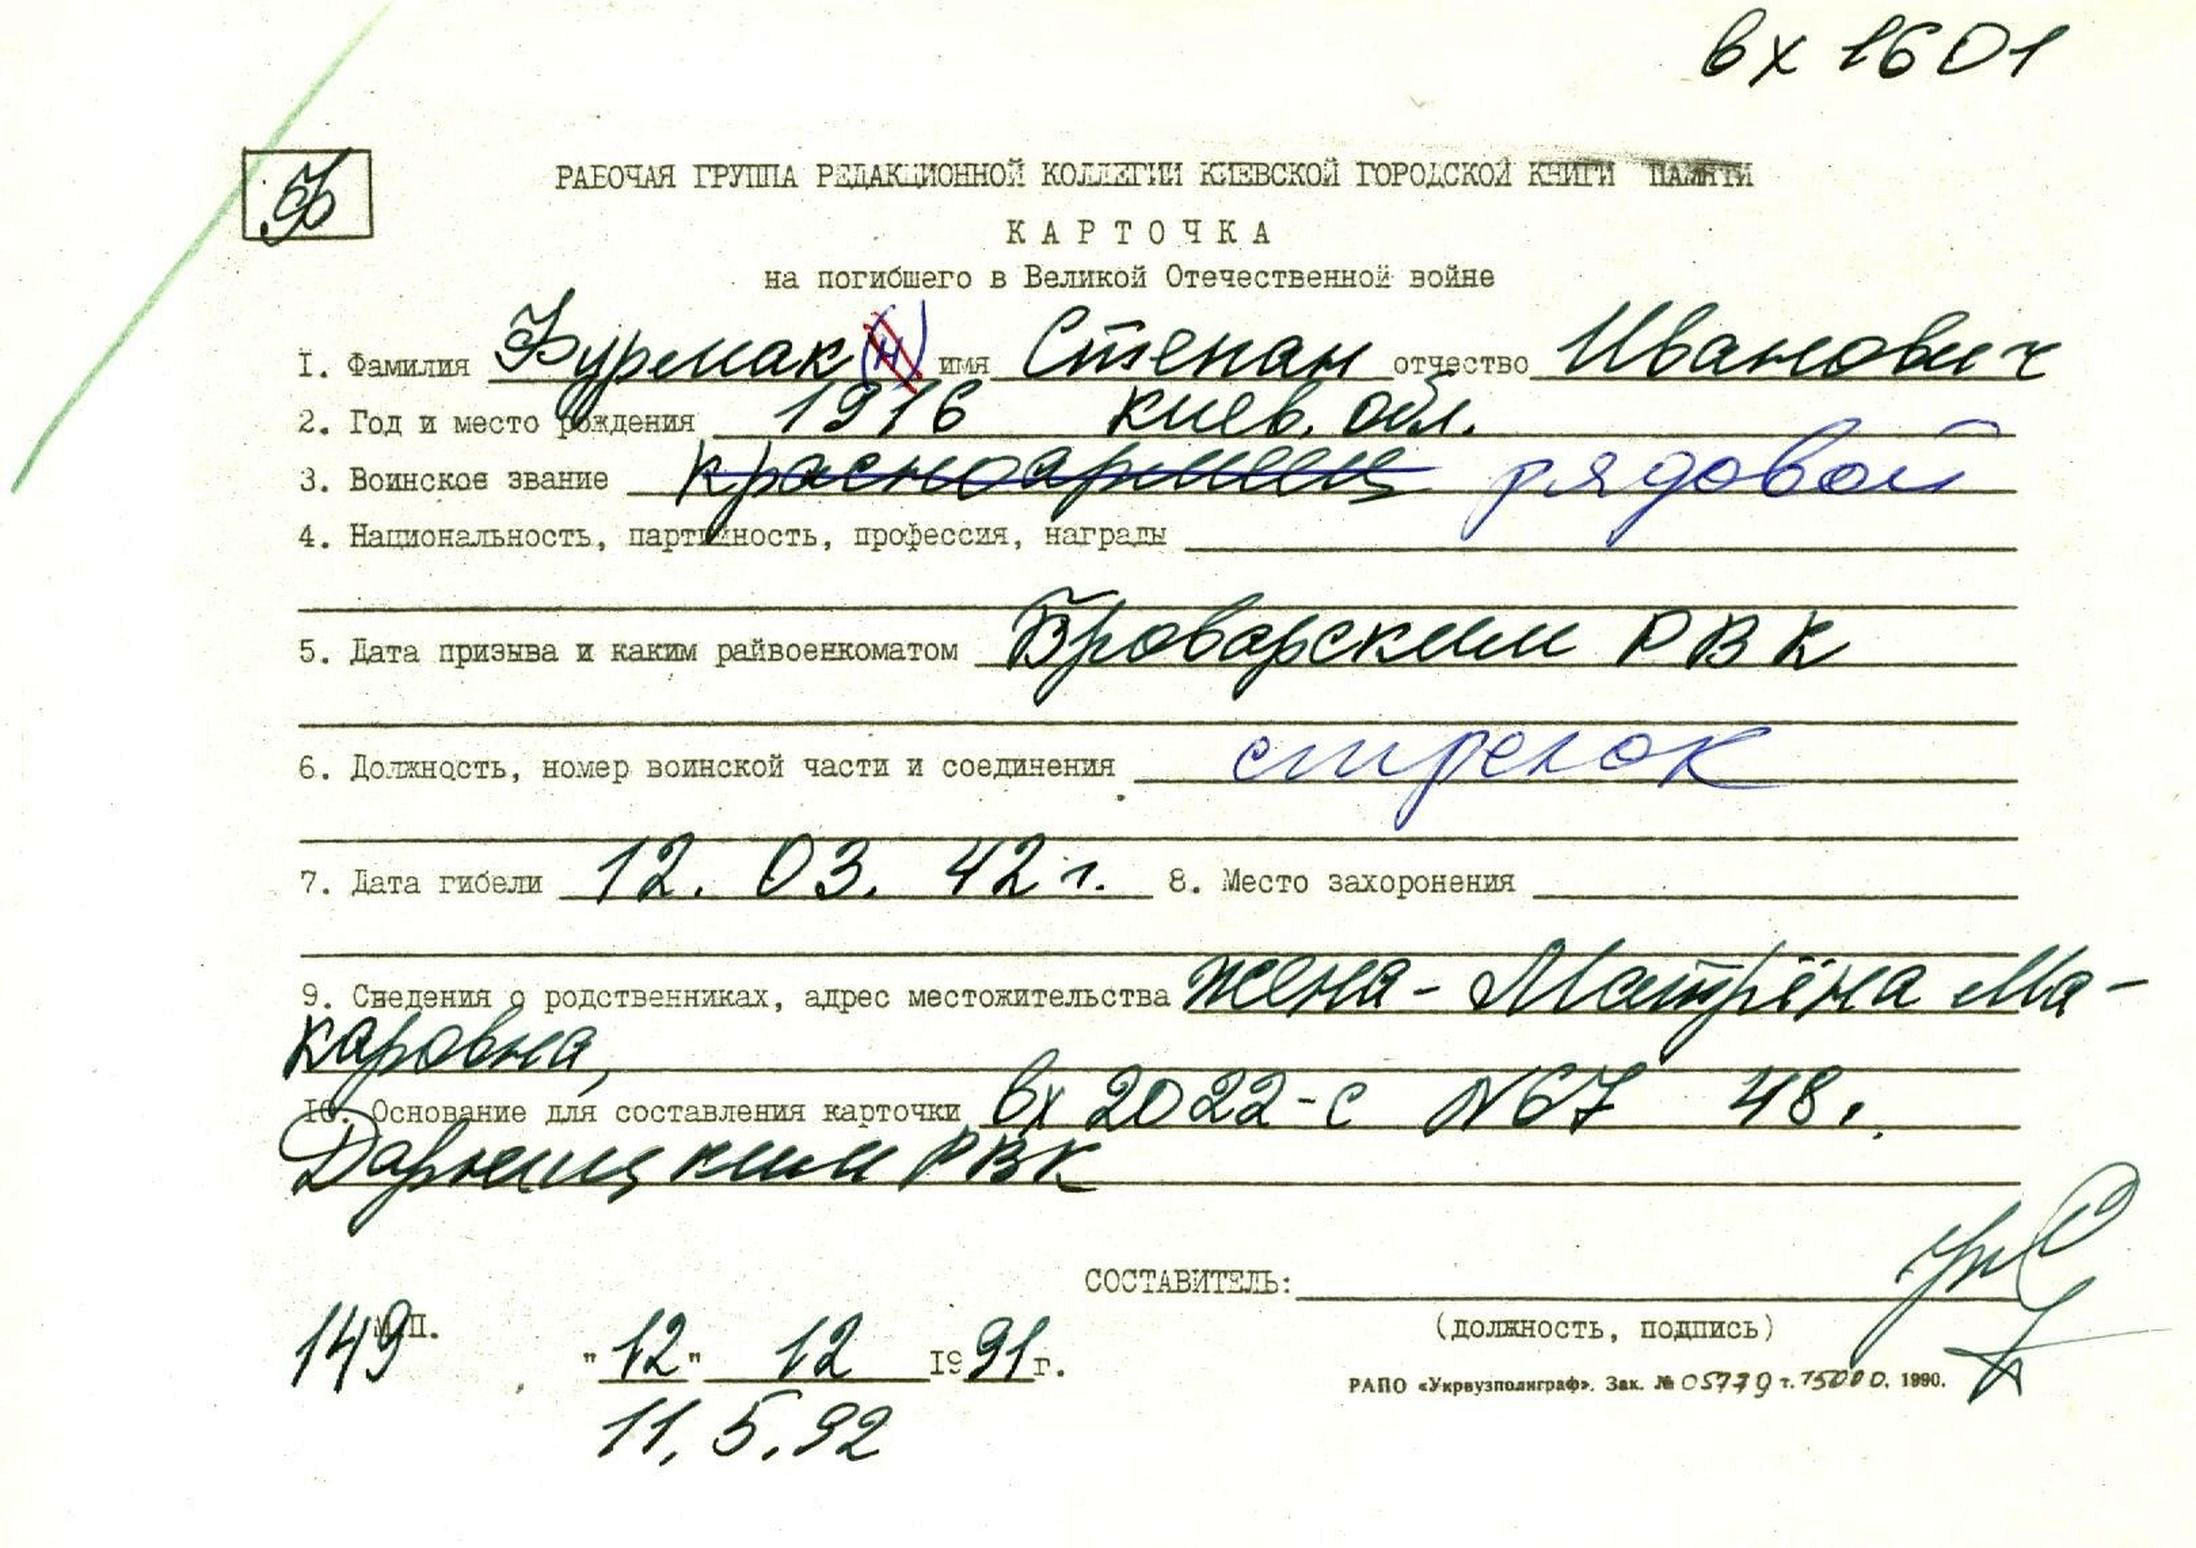 вх 1601
Б
РАБОЧАЯ ГРУППА РЕДАКЦИОННОЙ КОЛЛЕГИИ КИЕВСКОЙ ГОРОДСКОЙ КНИГИ ПАМЯТИ
КАРТОЧКА
на погибшего в Великой Отечественной войне
1. Фамилия Бурмак (н) имя Степан отчество Иванович
2. Год и место рождения 1916 Киев. обл.
3. Воинское звание красноармеец рядовой
4. Национальность, партийность, профессия, награды
5. Дата призыва и каким райвоенкоматом Броварским РВК
6. Должность, номер воинской части и соединения стрелок
7. Дата гибели 12. 03. 42 г. 8. Место захоронения
9. Сведения о родственниках, адрес местожительства жена - Матрёна Ма-
каровна,
10. Основание для составления карточки вх 2022-с N67 48г.
Дарницким РВК
СОСТАВИТЕЛЬ:
149 М.П. (должность, подпись)
"12" 12 1991г.
РАПО «Укрвузполиграф». Зак. № 05779 т. 15000. 1990.
11.5.92